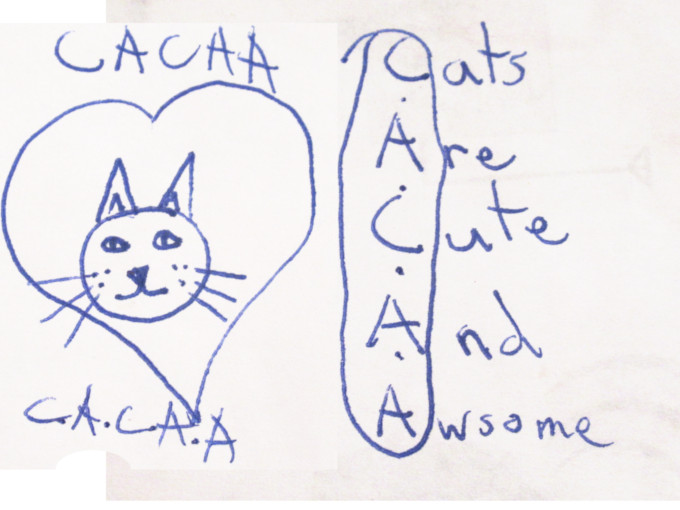 CACAA
C.A.C.A.A
Cats
Are
Cute
And
Awsome